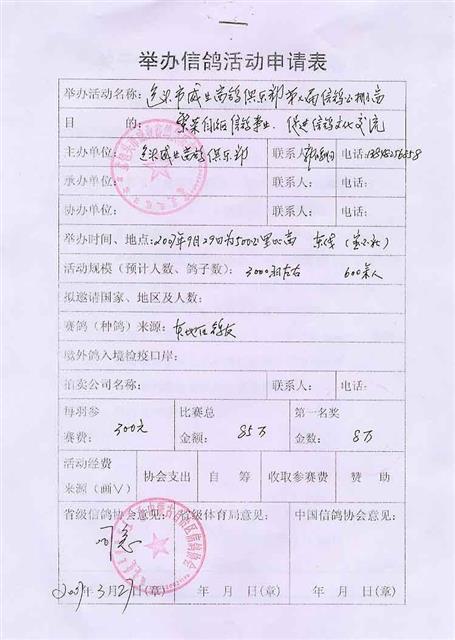 举办信鸽活动申请表
举办活动名称: 市威 高鸽俱乐部第 届信鸽 棚 高
目 的: 繁荣 信鸽事业、促进信鸽文化交流
主办单位: 威 高鸽俱乐部 联系人: 电话:
承办单位: 联系人: 电话:
协办单位: 联系人: 电话:
举办时间、地点: 2007年9月29日为500公里比高 东线
活动规模(预计人数、鸽子数): 3000羽左右 600来人
拟邀请国家、地区及人数:
赛鸽(种鸽)来源: 地区鸽友
境外鸽入境检疫口岸:
拍卖公司名称: 联系人: 电话:
每羽参 比赛总 第一名奖
赛费: 300元 金额: 85万 金数: 8万
活动经费
来源(画∨) 协会支出 自 筹 收取参赛费 赞 助
省级信鸽协会意见: 省级体育局意见: 中国信鸽协会意见:
同意
2007年3月27日(章) 年 月 日(章) 年 月 日(章)